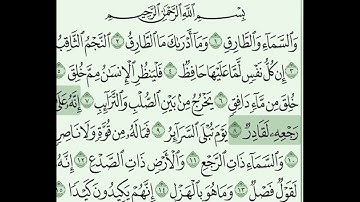 بِسْمِ اللَّهِ الرَّحْمَٰنِ الرَّحِيمِ
وَالسَّمَاءِ وَالطَّارِقِ ١ وَمَا أَدْرَاكَ مَا الطَّارِقُ ٢ النَّجْمُ الثَّاقِبُ
٣ إِن كُلُّ نَفْسٍ لَّمَّا عَلَيْهَا حَافِظٌ ٤ فَلْيَنظُرِ الْإِنسَانُ مِمَّ خُلِقَ ٥
خُلِقَ مِن مَّاءٍ دَافِقٍ ٦ يَخْرُجُ مِن بَيْنِ الصُّلْبِ وَالتَّرَائِبِ ٧ إِنَّهُ عَلَىٰ
رَجْعِهِ لَقَادِرٌ ٨ يَوْمَ تُبْلَى السَّرَائِرُ ٩ فَمَا لَهُ مِن قُوَّةٍ وَلَا نَاصِرٍ
١٠ وَالسَّمَاءِ ذَاتِ الرَّجْعِ ١١ وَالْأَرْضِ ذَاتِ الصَّدْعِ ١٢ إِنَّهُ
لَقَوْلٌ فَصْلٌ ١٣ وَمَا هُوَ بِالْهَزْلِ ١٤ إِنَّهُمْ يَكِيدُونَ كَيْدًا ١٥